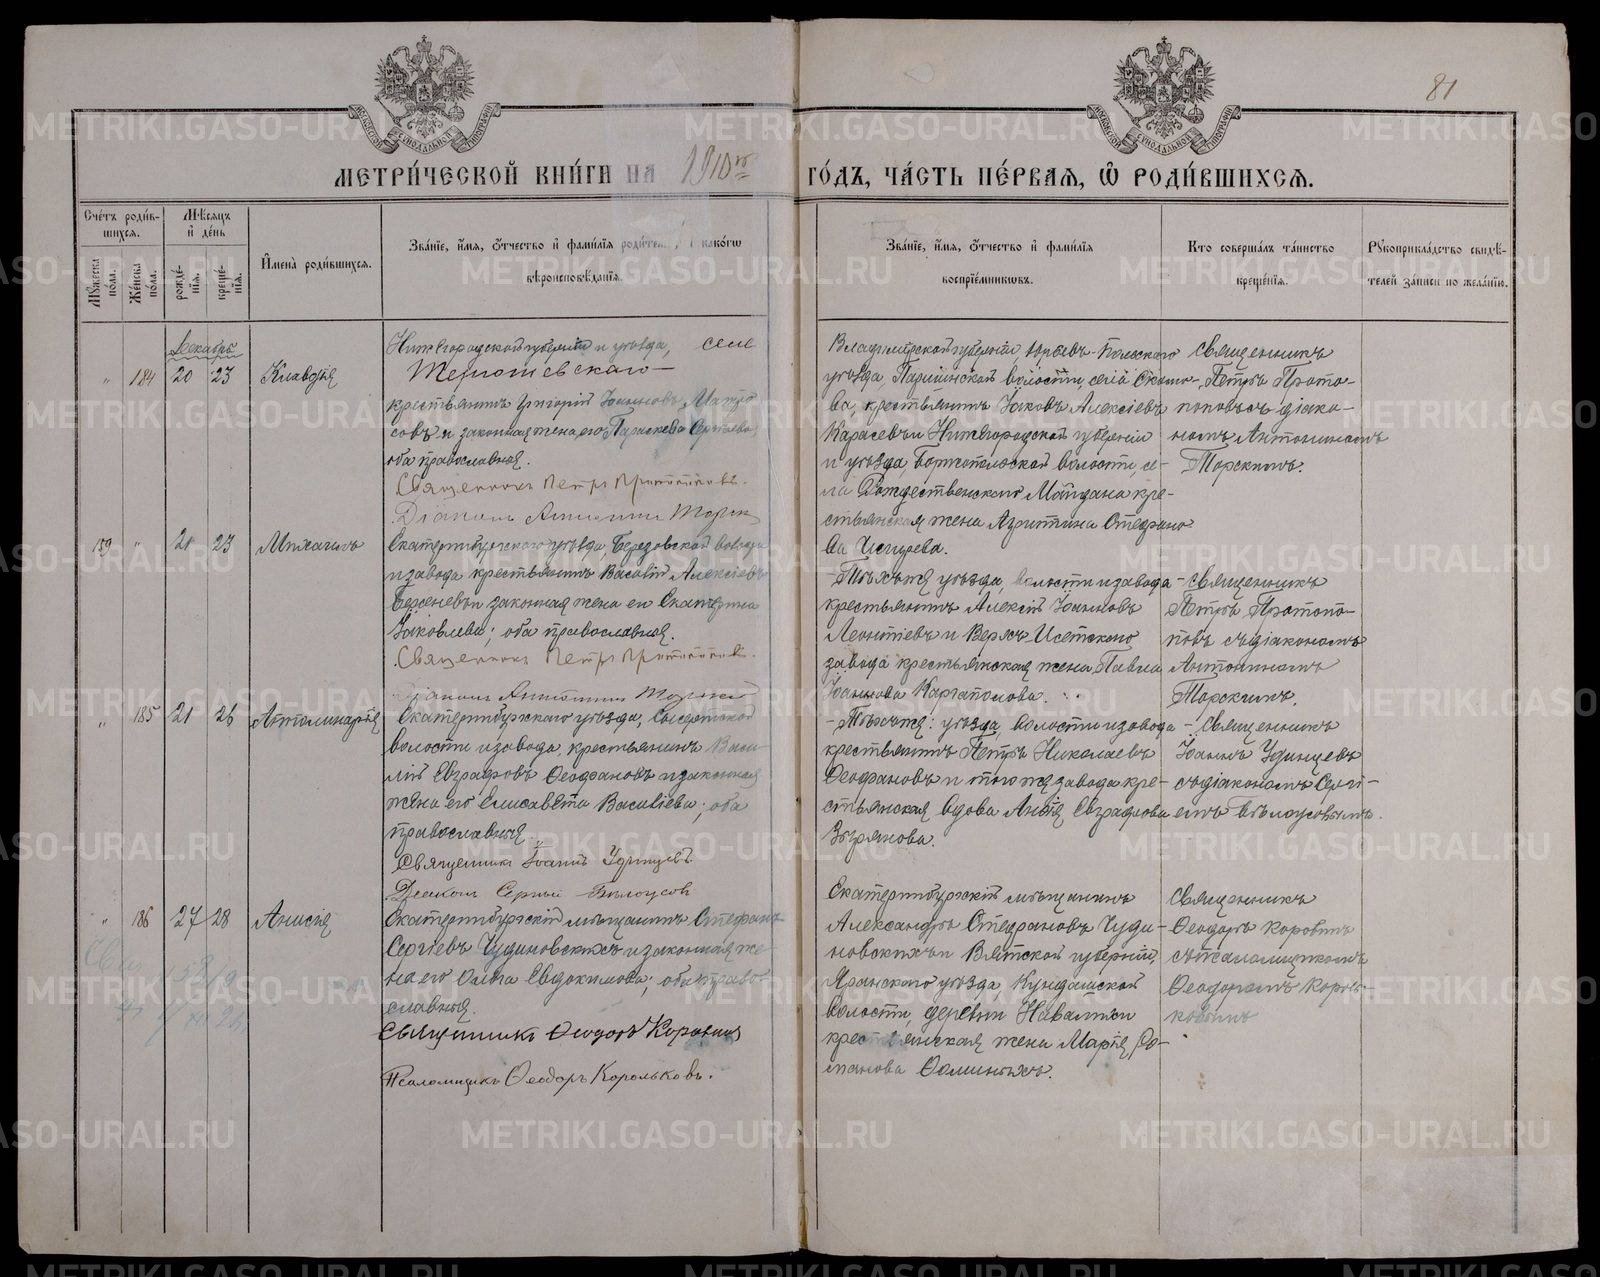 81
МЕТРИ́ЧЕСКОЙ КНИ́ГИ НА 1910 ГО́ДЪ, ЧА́СТЬ ПЕ́РВАЯ, Ѡ РОДИ́ВШИХСЯ.
Сче́тъ роди́в-
шихся.
Мꙋ́жеска по́ла.
Же́нска по́ла.
Мѣ́сяцъ и́ де́нь
рожде́-
нїя.
креще́-
нїя.
И҆мена̀ роди́вшихся.
Зва́нїе, и҆́мя, ѻ҆́тчество и҆ фами́лїя роди́те како́гѡ
вѣроисповѣ́данїя.
Зва́нїе, и҆́мя, ѻ҆́тчество и҆ фами́лїя
воспрїе́мниковъ.
Кто̀ соверша́лъ та́инство
креще́нїя.
Рꙋкоприкла́дство свидѣ́-
телей за́писи по жела́нїю.
Декабрь
" 184 20 23 Клавдія
Нижегородской губерніи и уѣзда, села
крестьянинъ Григорій Іоанновъ Матро
совъ и законная жена его Параскева Сергѣева
оба православныя.
Священникъ Петръ Протопоповъ.
Діаконъ Антонинъ Торск
Владимірской губерніи, Юрьевъ-Польскаго
уѣзда, Паршинской волости, села
ва, крестьянинъ Іаковъ Алексіевъ
Карасевъ и Нижегородской губерніи
и уѣзда, волости, се-
ла Рождественскаго Майдана кре-
стьянская жена Стефано
ва
Священникъ
Петръ Прото-
поповъ съ діако-
номъ Антониномъ
Торскимъ.
159 " 21 23 Михаилъ
Екатеринбургскаго уѣзда, Березовской волости
и завода крестьянинъ Василій Алексіевъ
Берсеневъ и законная жена его Екатерина
Іаковлева; оба православныя.
Священникъ Петръ Протопоповъ.
Діаконъ Антонинъ Торскій
Тѣхъ же уѣзда, волости и завода
крестьянинъ Алексій Іоанновъ
Леонтіевъ и Верхъ Исетскаго
завода крестьянская жена Павла
Іоаннова Каргаполова.
Священникъ
Петръ Протопо-
повъ съ діакономъ
Антониномъ
Торскимъ.
" 185 21 26 Апполинарія
Екатеринбургскаго уѣзда, Сысертской
волости и завода, крестьянинъ Васи
лій Евграфовъ Ѳеофановъ и законная
жена его Елисавета Василіева; оба
православныя.
Священникъ Іоаннъ Удинцевъ
Діаконъ Сергій Бѣлоусов
Тѣхъ же: уѣзда, волости и завода
крестьянинъ Петръ Николаевъ
Ѳеофановъ и того же завода кре-
стьянская вдова Анна Евграфова
Зырянова.
Священникъ
Іоаннъ Удинцевъ
съ діакономъ Сергі-
емъ Бѣлоусовымъ.
" 186 27 28 Анисія
Екатеринбургскій мѣщанинъ Стефанъ
Сергіевъ Чудиновскихъ и законная же-
на его Ольга Евдокимова; оба право-
славныя.
Священникъ Ѳеодоръ Коровинъ
Псаломщикъ Ѳеодоръ Корольковъ.
Екатеринбургскій мѣщанинъ
Александръ Стефановъ Чуди-
новскихъ и Вятской губерніи,
Яранскаго уѣзда, волости, деревни
крестьянская жена Марія Ро-
манова Ѳоминыхъ.
Священникъ
Ѳеодоръ Коровинъ
съ псаломщикомъ
Ѳеодоромъ Король-
ковымъ